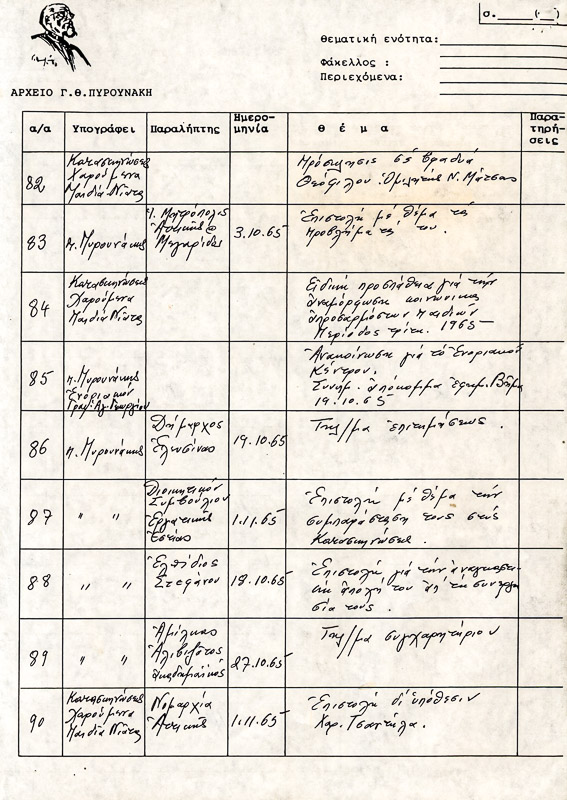 σ. ____(__)
θεματική ενότητα:
Φάκελλος :
Περιεχόμενα:
ΑΡΧΕΙΟ Γ.Θ.ΠΥΡΟΥΝΑΚΗ
α/α Υπογράφει Παραλήπτης Ημερο-μηνία θ έ μ α Παρα-τηρή-σεις
82
Κατασκηνώσεις
Χαρούμενα
Παιδιά Νιάτα
Πρόσκλησις σέ βραδυά
Θεόφιλου Ὁμιλητής Ν. Μάτσας
83
π. Πυρουνάκης
Ἱ. Μητρόπολις
Ἀττικῆς @
Μεγαρίδος
3.10.65
Ἐπιστολή μέ θέμα τά
προβλήματά του .
84
Κατασκηνώσεις
Χαρούμενα
Παιδιά Νιάτα
Εἰδική προσπάθεια γιά τήν
ἀναμόρφωση κοινωνικά
ἀπροσαρμόστων παιδιῶν
Περίοδος τρίτη. 1965
85
π. Πυρουνάκης
Ἐνοριακόν
Γραφ. Ἁγ. Γεωργίου
Ἀνακοίνωση γιά τό Ἐνοριακό
Κέντρον.
Συνημ. ἀπόκομμα ἐφημ. Βῆμα
19.10.65
86
π. Πυρουνάκης
Δήμαρχος
Ἐλευσίνας
19.10.65
Τηλ/μα ἐπιτιμήσεως .
87
" "
Διοικητικόν
Συμβούλιον
Ἐργατικῆς
Ἑστίας
1.11.65
Ἐπιστολή μέ θέμα τήν
συμπαράσταση τους στίς
Κατασκηνώσεις .
88
" "
Ἐλπίδιος
Στεφάνου
18.10.65
Ἐπιστολή γιά τήν ἀναγκαστι-
κή ἀποχή του ἀπ' τή συνεργα-
σία τους .
89
" "
Ἀμίλκας
Ἀλιβιζᾶτος
ἀκαδημαϊκός
27.10.65
Τηλ/μα συγχαρητήριον
90
Κατασκηνώσεις
Χαρούμενα
Παιδιά Νιάτα
Νομαρχία
Ἀττικῆς
1.11.65
Ἐπιστολή δι' ὑπόθεσιν
Χαρ. Τσαντήλα .